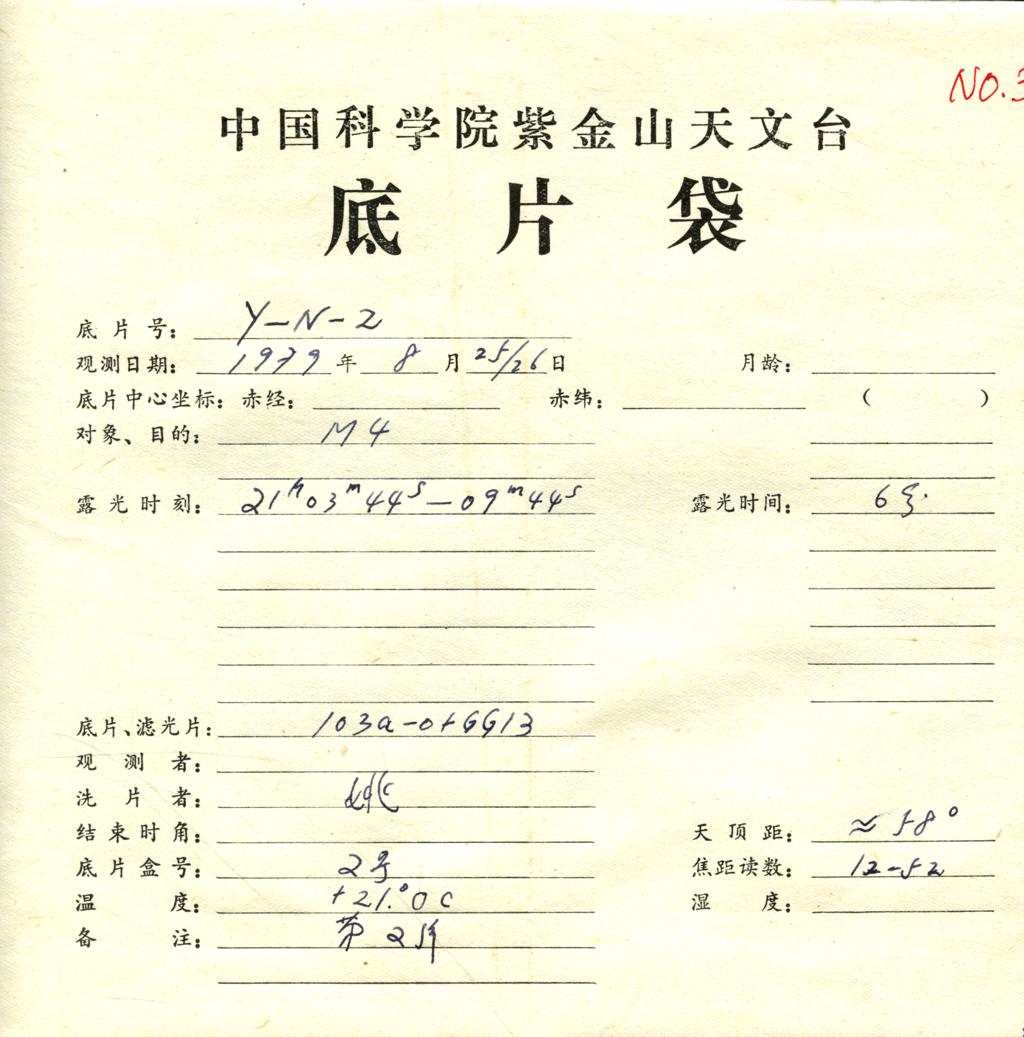 NO.3
中国科学院紫金山天文台
底片袋
底片号: Y-N-2
观测日期: 1979年 8月 25/26日 月龄:
底片中心坐标: 赤经: 赤纬: ( )
对象、目的: M4
露光时刻: 21ʰ03ᵐ44ˢ—09ᵐ44ˢ 露光时间: 6分
底片、滤光片: 103a-O+GG13
观测者:
洗片者:
结束时角: 天顶距: ≈58°
底片盒号: 2号 焦距读数: 12-52
温度: +21.°0C 湿度:
备注: 第2片